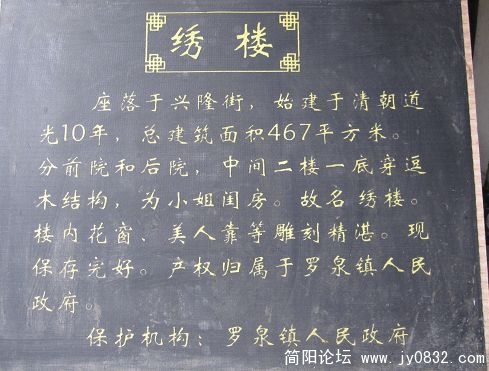 绣楼
座落于兴隆街，始建于清朝道
光10年，总建筑面积467平方米。
分前院和后院，中间二楼一底穿逗
木结构，为小姐闺房。故名绣楼。
楼内花窗、美人靠等雕刻精湛。现
保存完好。产权归属于罗泉镇人民
政府。
保护机构：罗泉镇人民政府
简阳论坛 www.jy0832.com